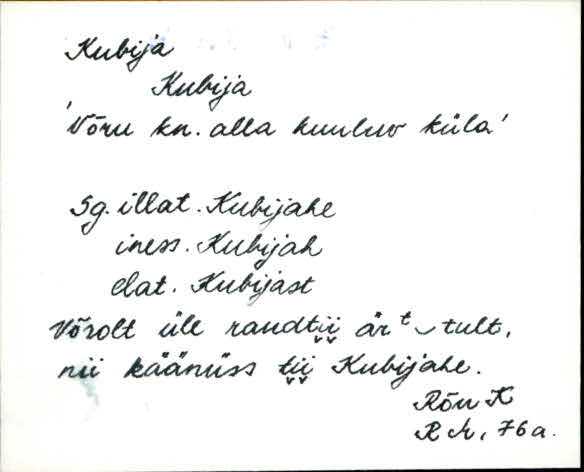 Kubija
Kubija
'Võru kn. alla kuuluv küla'
Sg. illat. Kubijahe
iness. Kubijah
elat. Kubijast
Võrolt üle raudtii̬i̬ är t‿tult,
nii käänüss tii̬i̬ Kubijahe.
Rõu K
R M, 76 a.